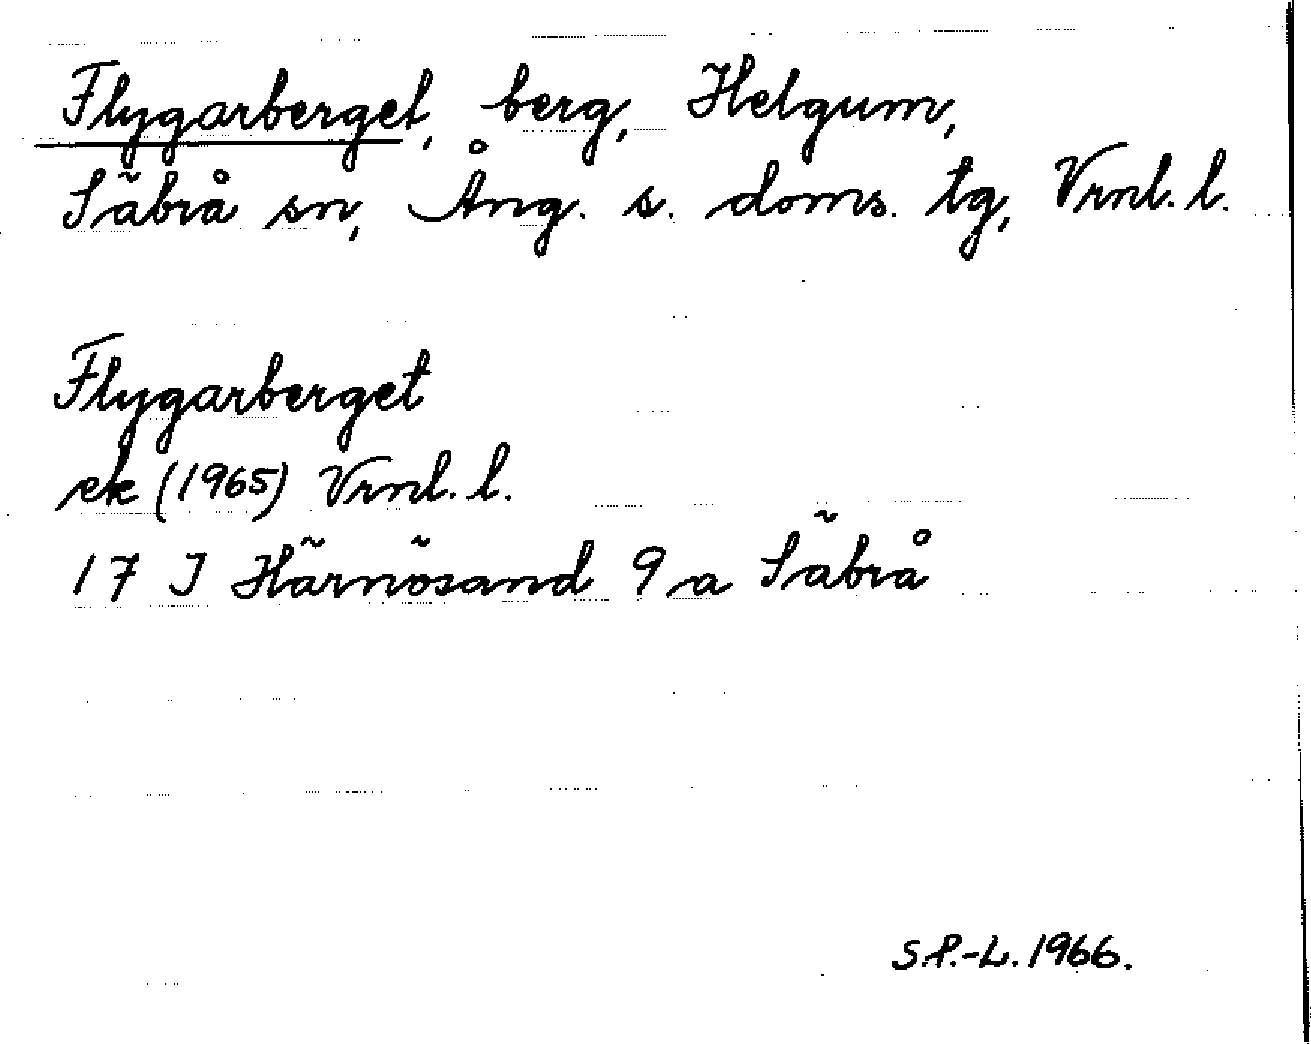 Flygarberget, berg, Helgum,
Säbrå sn, Ång. s. doms. tg, Vrnl. l.
Flygarberget
ek (1965) Vrnl. l.
17 I Härnösand 9 a Säbrå
S.P.-L. 1966.